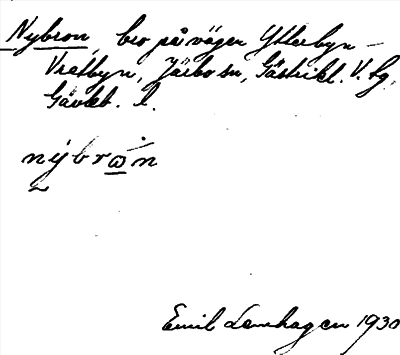 Nybron, bro på vägen Ytterbyn –
Vretbyn, Järbo sn, Gästrikl. V. tg,
Gävleb. l.
nýbrωn
Emil Lenhagen 1930